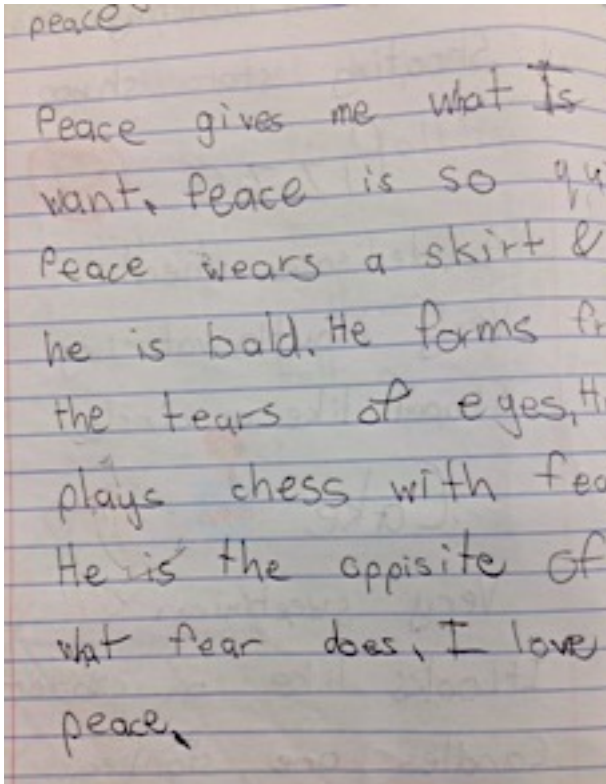 peace
Peace gives me what Is
want. Peace is so
Peace wears a skirt &
he is bald. He forms
the tears of eyes,
plays chess with
He is the oppisite of
what fear does, I love
peace.